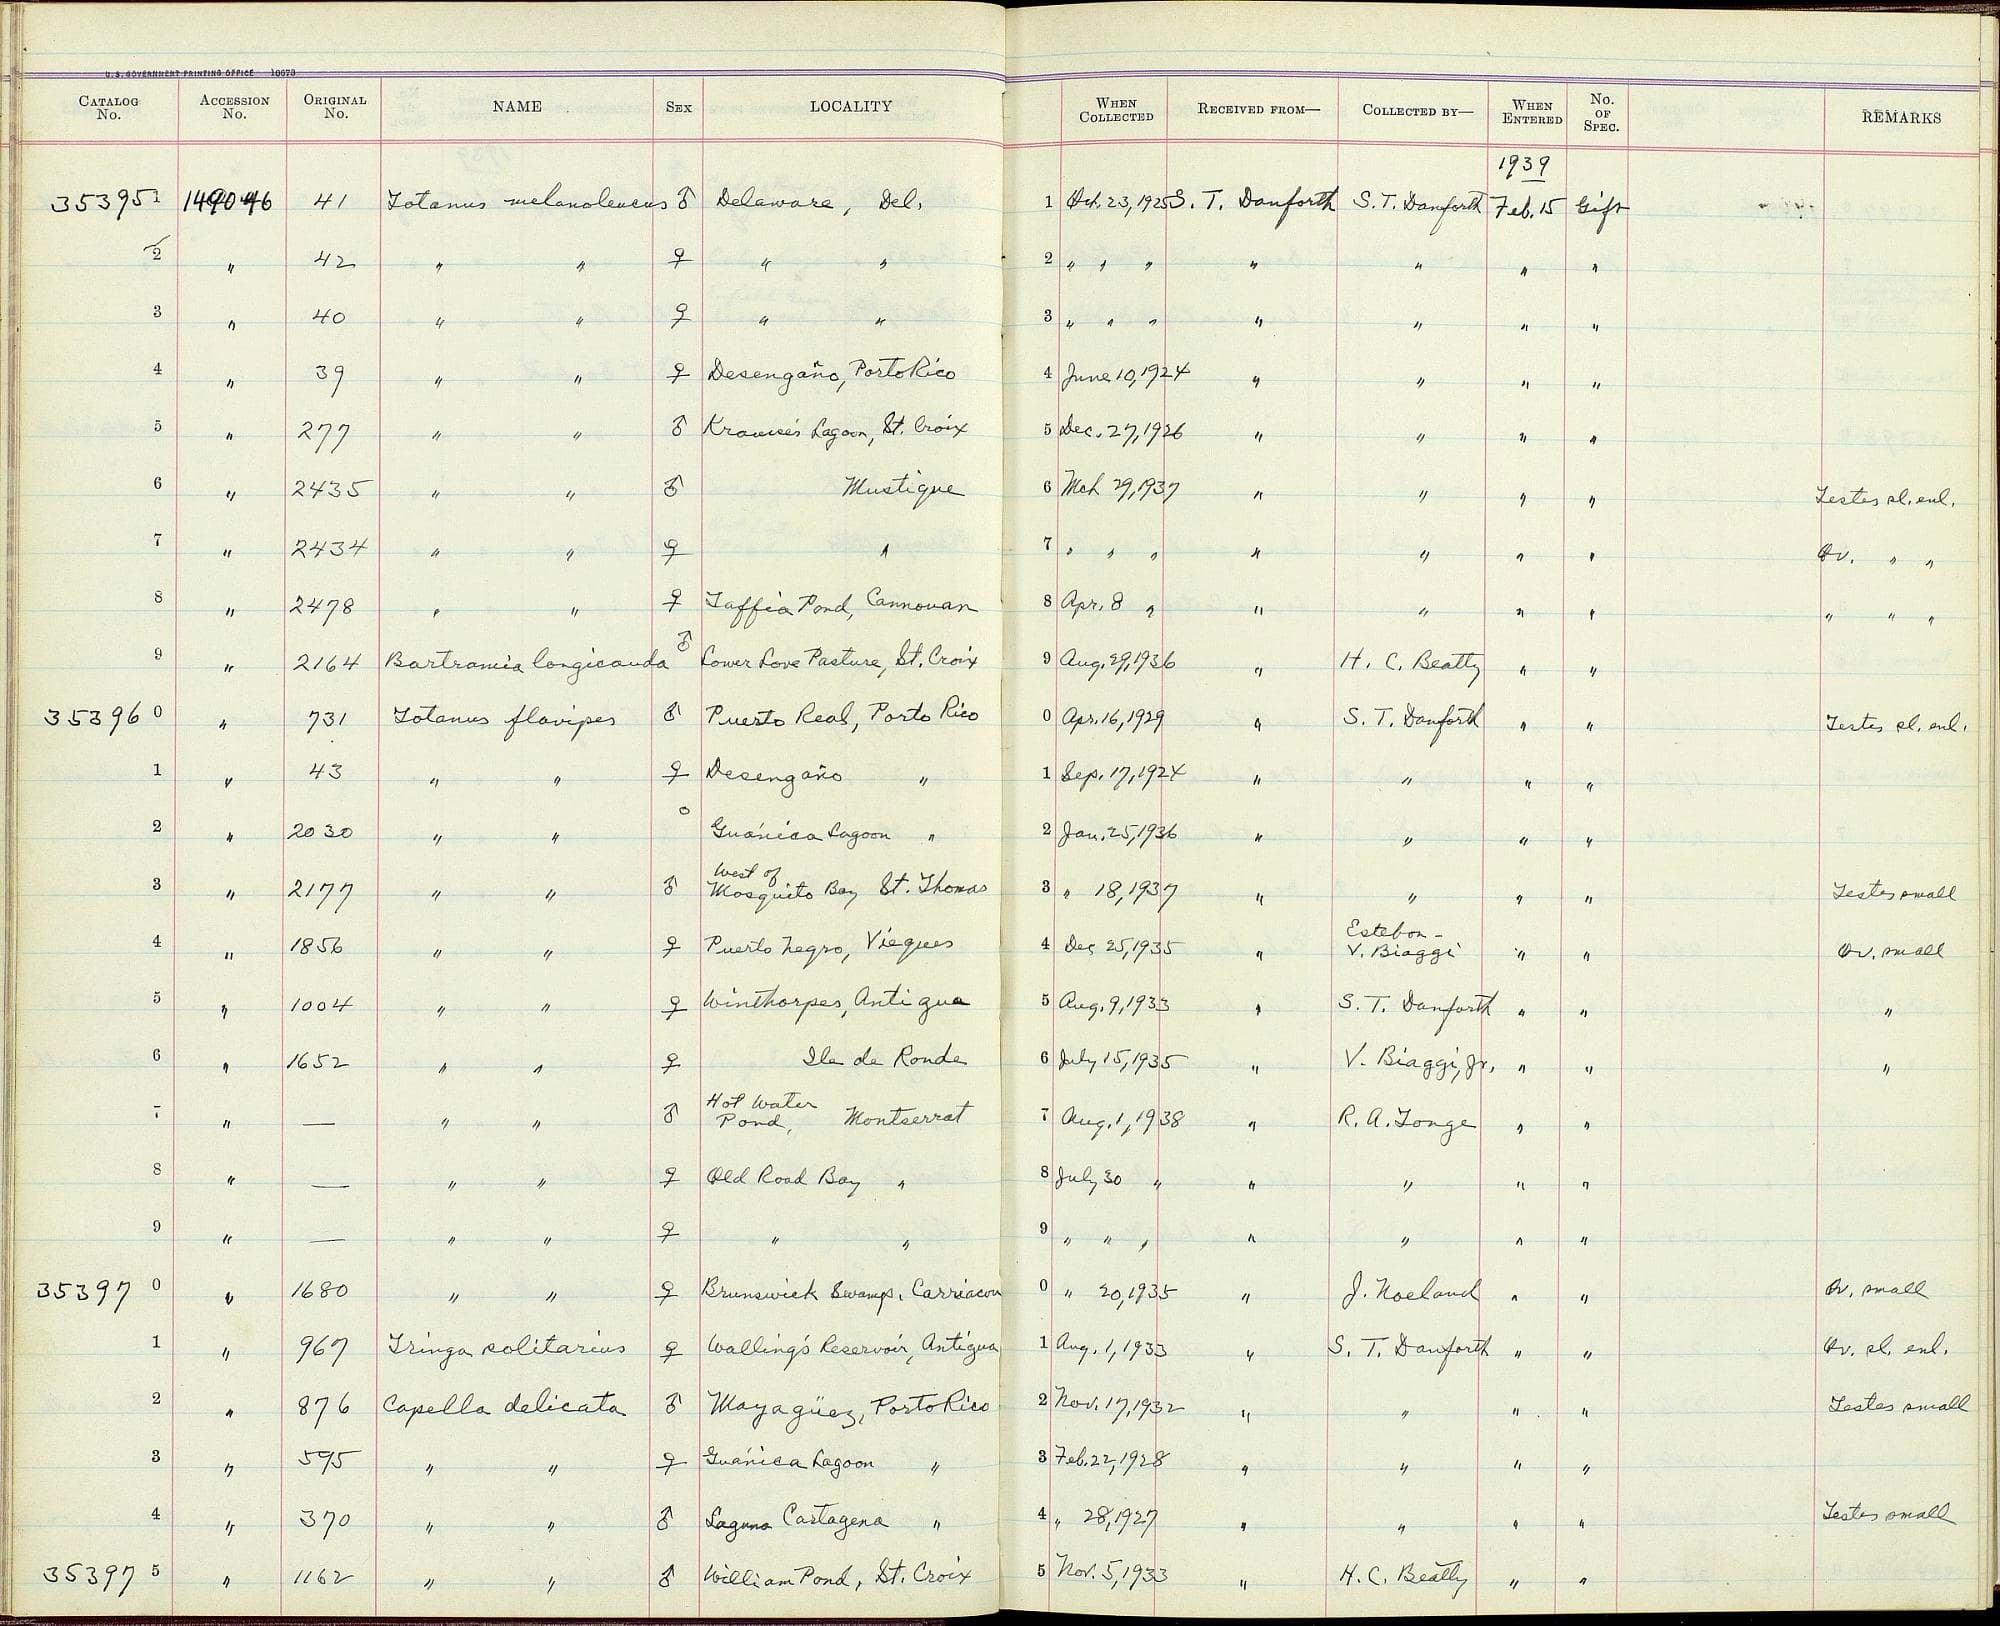 U. S. GOVERNMENT PRINTING OFFICE 10673
CATALOG No. ACCESSION No. ORIGINAL No. NAME SEX LOCALITY WHEN COLLECTED RECEIVED FROM— COLLECTED BY— WHEN ENTERED No. OF SPEC. REMARKS
1939
353951 149046 41 Totanus melanoleucus ♂ Delaware, Del. 1 Oct. 23, 1925 S. T. Danforth S. T. Danforth Feb. 15 Gift
2 " 42 " " ♀ " " 2 " " " " " " "
3 " 40 " " ♀ " " 3 " " " " " " "
4 " 39 " " ♀ Desengaño, Porto Rico 4 June 10, 1924 " " " "
5 " 277 " " ♂ Krause's Lagoon, St. Croix 5 Dec. 27, 1926 " " " "
6 " 2435 " " ♂ Mustique 6 Mch 29, 1937 " " " " Testes sl. enl.
7 " 2434 " " ♀ " 7 " " " " " " " Ov. " "
8 " 2478 " " ♀ Taffia Pond, Cannouan 8 Apr. 8 " " " " " " " "
9 " 2164 Bartramia longicauda ♂ Lower Love Pasture, St. Croix 9 Aug. 29, 1936 " H. C. Beatty " "
353960 " 731 Totanus flavipes ♂ Puerto Real, Porto Rico 0 Apr. 16, 1929 " S. T. Danforth " " Testes sl. enl.
1 " 43 " " ♀ Desengaño " 1 Sep. 17, 1924 " " " "
2 " 2030 " " o Guánica Lagoon " 2 Jan. 25, 1936 " " " "
3 " 2177 " " ♂ West of Mosquito Bay St. Thomas 3 " 18, 1937 " " " " Testes small
4 " 1856 " " ♀ Puerto Negro, Vieques 4 Dec 25, 1935 " Esteban - V. Biaggi " " Ov. small
5 " 1004 " " ♀ Winthorpes, Antigua 5 Aug. 9, 1933 " S. T. Danforth " " "
6 " 1652 " " ♀ Ile de Ronde 6 July 15, 1935 " V. Biaggi, Jr. " " "
7 " — " " ♂ Hot Water Pond, Montserrat 7 Aug. 1, 1938 " R. A. Tonge " "
8 " — " " ♀ Old Road Bay " 8 July 30 " " " " "
9 " — " " ♀ " " 9 " " " " " " "
353970 " 1680 " " ♀ Brunswick Swamp, Carriacou 0 " 20, 1935 " J. Noeland " " Ov. small
1 " 967 Tringa solitarius ♀ Walling's Reservoir, Antigua 1 Aug. 1, 1933 " S. T. Danforth " " Ov. sl. enl.
2 " 876 Capella delicata ♂ Mayagüez, Porto Rico 2 Nov. 17, 1932 " " " " Testes small
3 " 595 " " ♀ Guánica Lagoon " 3 Feb. 22, 1928 " " " "
4 " 370 " " ♂ Laguna Cartagena " 4 " 28, 1927 " " " " Testes small
353975 " 1162 " " ♂ William Pond, St. Croix 5 Nov. 5, 1933 " H. C. Beatty " "